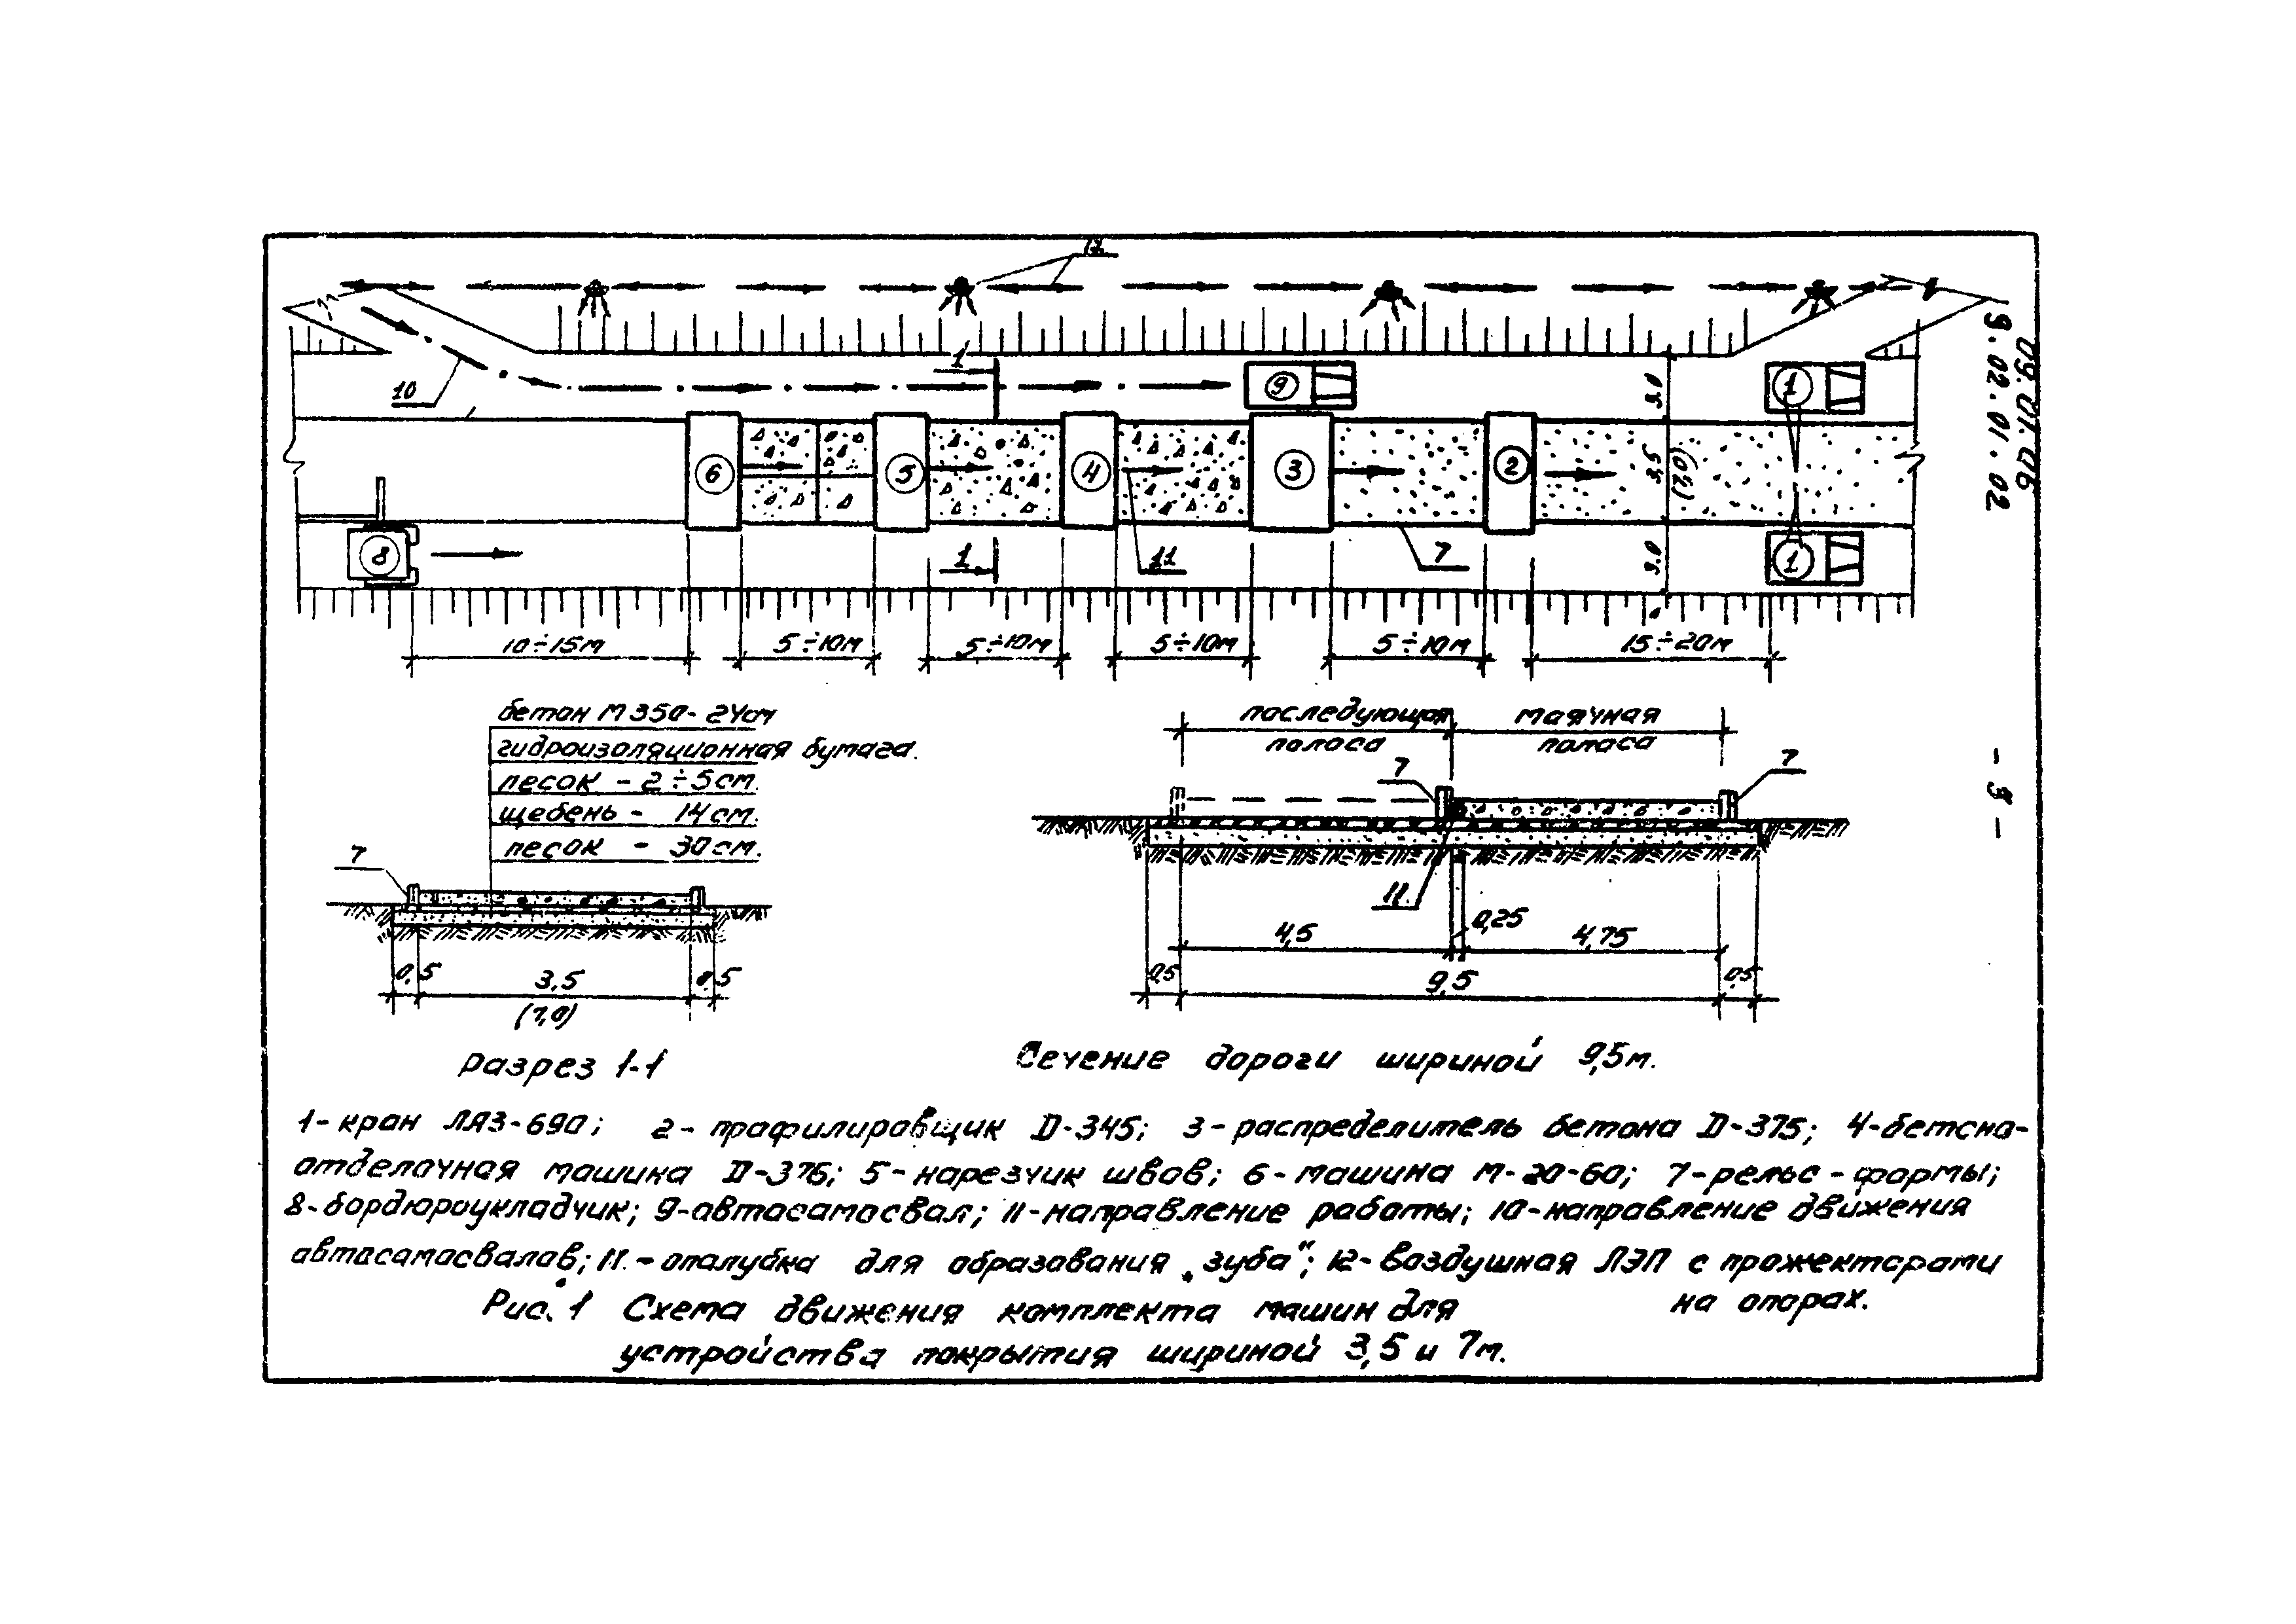 12
10
1
9
1
3.0
3,5
(7,0)
3.0
6
5
4
3
2
8
1
11
7
1
10÷15м
5÷10м
5÷10м
5÷10м
5÷10м
15÷20м
09.01.06
9.02.01.02
- 3 -
бетон М 350 - 24см
гидроизоляционная бумага.
песок - 2÷5см.
щебень - 14см.
песок - 30см.
7
0,5
3,5
0,5
(7,0)
Разрез 1-1
последующая
полоса
маячная
полоса
7
7
11.
0,25
4,5
4,75
0,5
9,5
0,5
Сечение дороги шириной 9,5м.
1- кран ЛАЗ-690; 2- профилировщик Д-345; 3- распределитель бетона Д-375; 4-бетоно-
отделочная машина Д-376; 5- нарезчик швов; 6- машина М-20-60; 7-рельс-формы;
8-бордюроукладчик; 9-автосамосвал; 11-направление работы; 10-направление движения
автосамосвалов; 11.- опалубка для образования „зуба"; 12- воздушная ЛЭП с прожекторами
на опорах.
Рис. 1 Схема движения комплекта машин для
устройства покрытия шириной 3,5 и 7м.